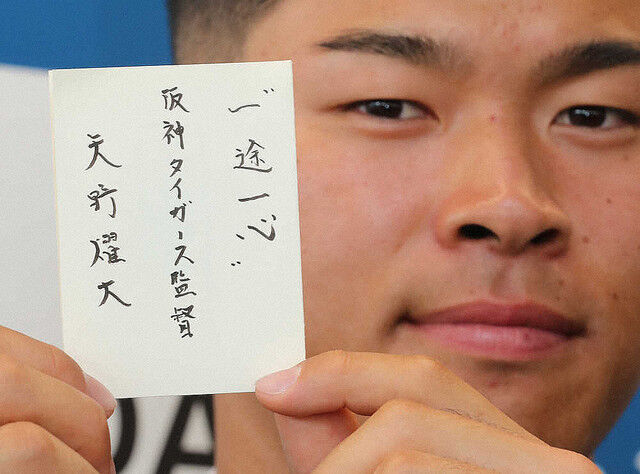 〝一途一心〟
阪神タイガース監督
矢野燿大
DA